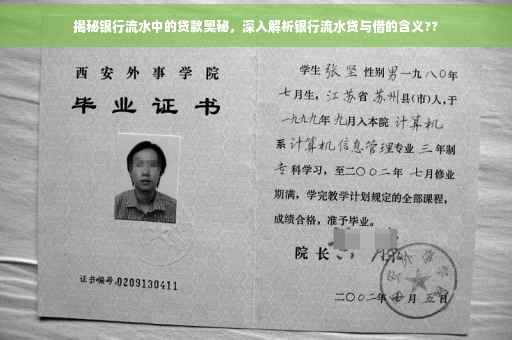 揭秘银行流水中的贷款奥秘，深入解析银行流水贷与借的含义??
西安外事学院
毕业证书
证书编号:0209130411
学生 张坚 性别 男 一九八〇年
七月生，江苏省 苏州 县(市)人，于
一九九九年 九月入本院 计算机
系 计算机信息管理 专业 三 年制
专 科学习，至二〇〇二年 七月修业
期满，学完教学计划规定的全部课程，
成绩合格，准予毕业。
院长
二〇〇二年 月 五日